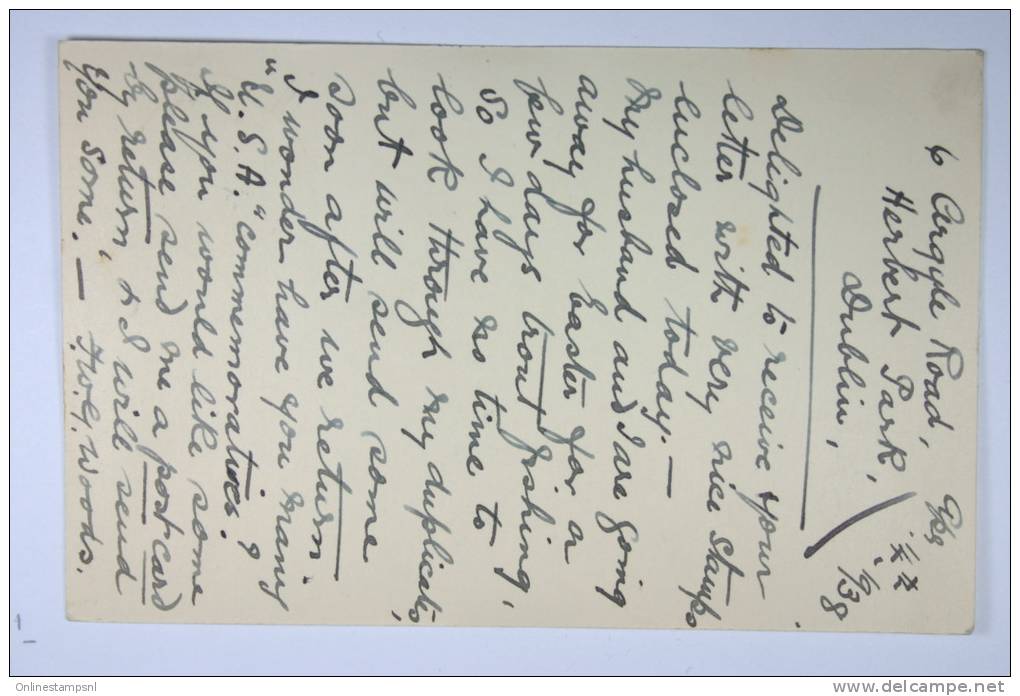 6 Argyle Road,
Herbert Park,
Dublin,
/938
Delighted to receive your
letter with very nice stamps
enclosed today. —
My husband and I are going
away for Easter for a
few days trout fishing,
So I have no time to
look through my duplicates,
but will send some
soon after we return.
I wonder have you many
"U.S.A." commemoratives?
If you would like some
please send me a postcard
by return, & I will send
you some. — Woods.
Onlinestampsnl
delcampe.net